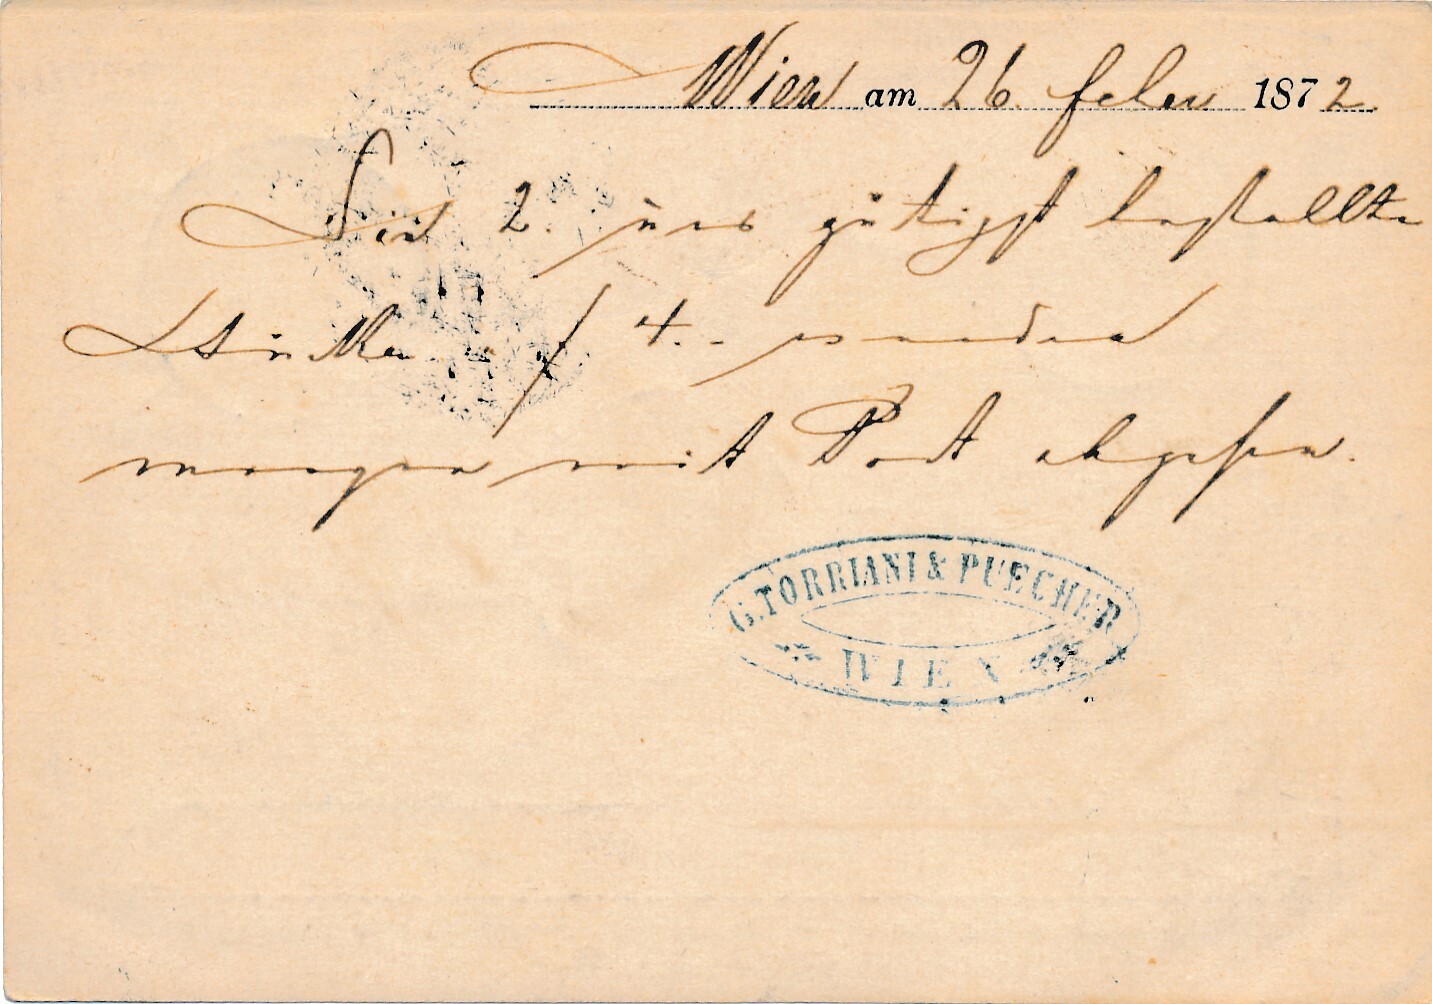 Wien am 26. Feber 1872
Die 2. uns gütigst bestellten
Stücke f 4.- werden
morgen mit Post abgehen.
G. TORRIANI & PUECHER
WIEN